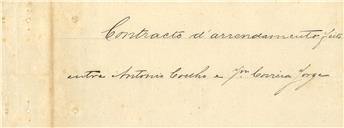 Contracto d'arrendamento feito
entre Antonio Coelho e Jm Correia Jorge